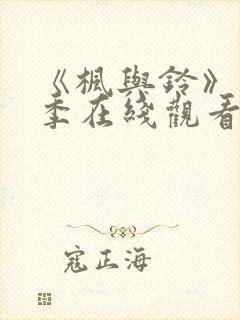 《楓與鈴》
季在綫觀看
寇正海